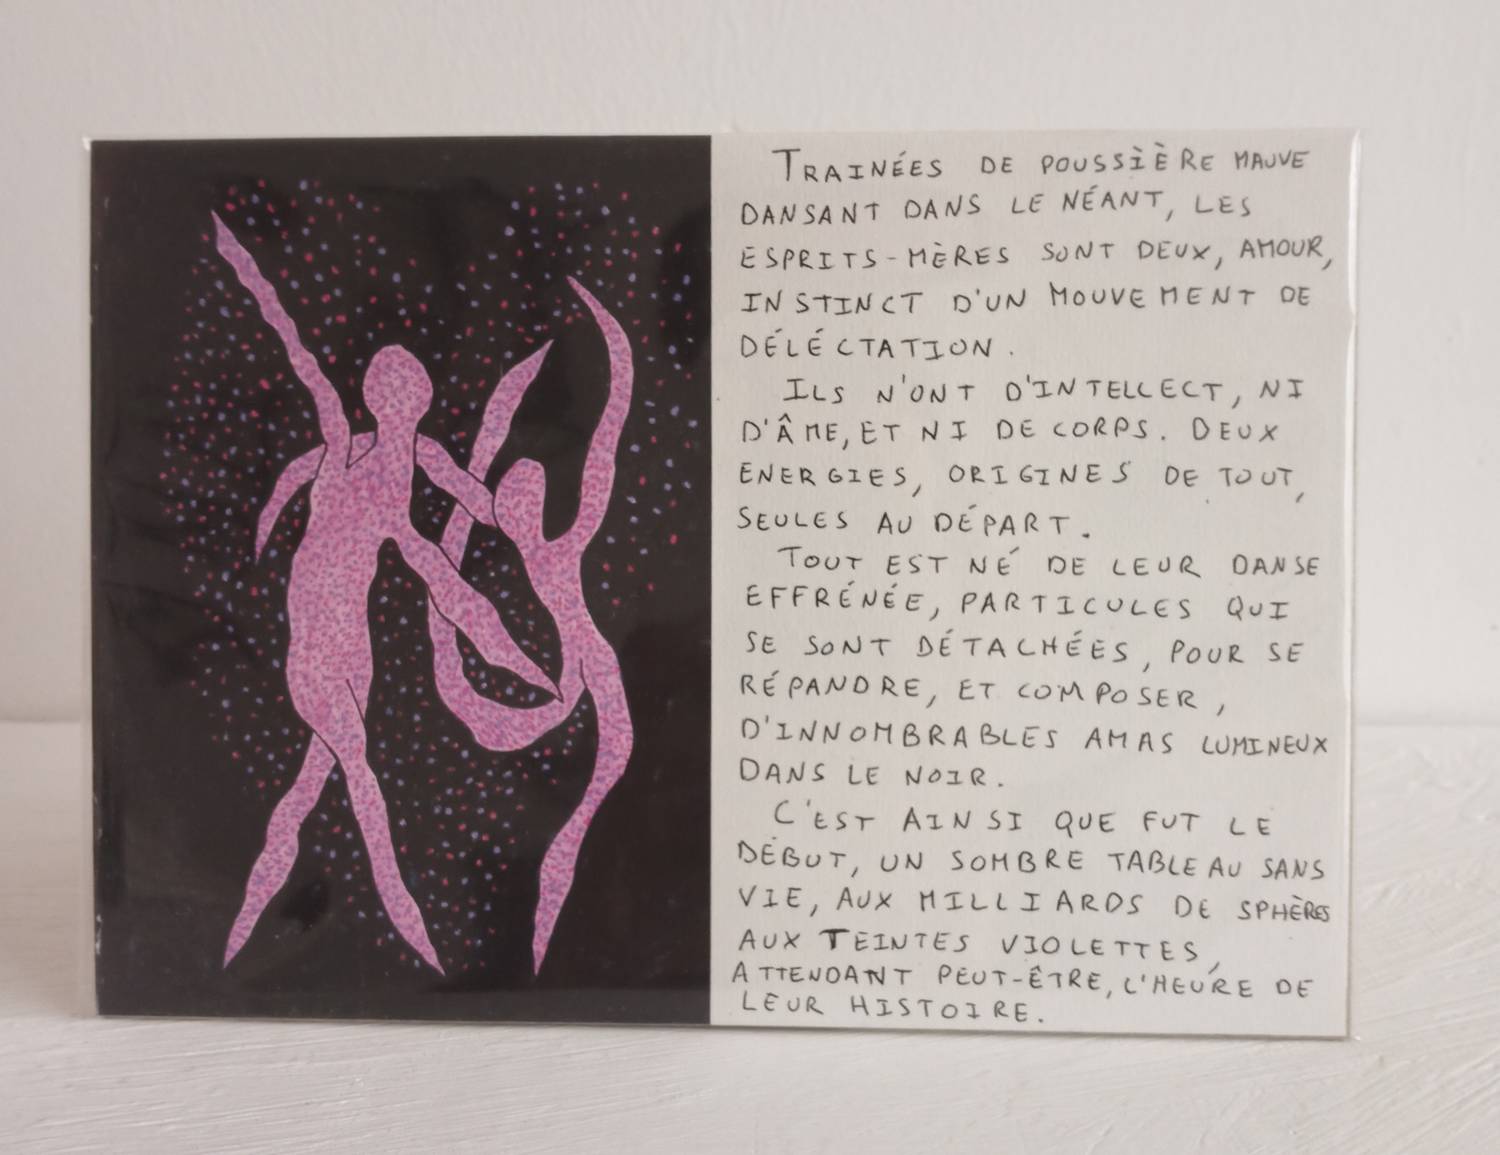 TRAINÉES DE POUSSÌÈRE MAUVE
DANSANT DANS LE NÉANT, LES
ESPRITS-MÈRES SONT DEUX, AMOUR,
INSTINCT D'UN MOUVEMENT DE
DÉLÉCTATION.
ILS N'ONT D'INTELLECT, NI
D'ÂME, ET NI DE CORPS. DEUX
ENERGIES, ORIGINES DE TOUT,
SEULES AU DÉPART.
TOUT EST NÉ DE LEUR DANSE
EFFRÉNÉE, PARTICULES QUI
SE SONT DÉTACHÉES, POUR SE
RÉPANDRE, ET COMPOSER,
D'INNOMBRABLES AMAS LUMINEUX
DANS LE NOIR.
C'EST AINSI QUE FUT LE
DÉBUT, UN SOMBRE TABLEAU SANS
VIE, AUX MILLIARDS DE SPHÈRES
AUX TEINTES VIOLETTES,
ATTENDANT PEUT-ÊTRE, L'HEURE DE
LEUR HISTOIRE.